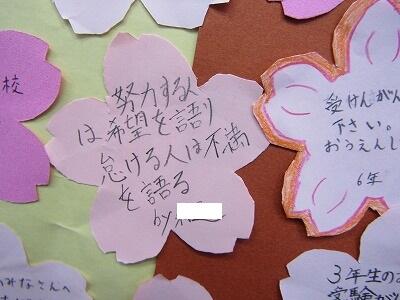 校
努力する人
は希望を語り
怠ける人は不満
を語る
by
受けんがん
下さい。
おうえんし
6年
のみなさんへ
3年生のお
受験が